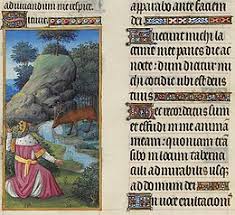 adiuvandum me respice
apparabo ante facie
Fuerunt michi lacri
me mee panes die ac no
cte dum dicitur mi
chi cotidie ubi est deus
tuus
Hec recordatus sum
et effudi in me anima
meam quoniam tra
sibo in locum taberna
culi admirabilis usque
ad domum dei
In voce exultationis